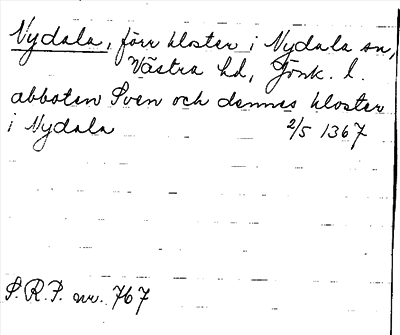 Nydala, förr kloster i Nydala sn,
Västra hd, Jönk. l.
abboten Sven och dennes kloster
i Nydala 2/5 1367
S.R.P. nr. 767